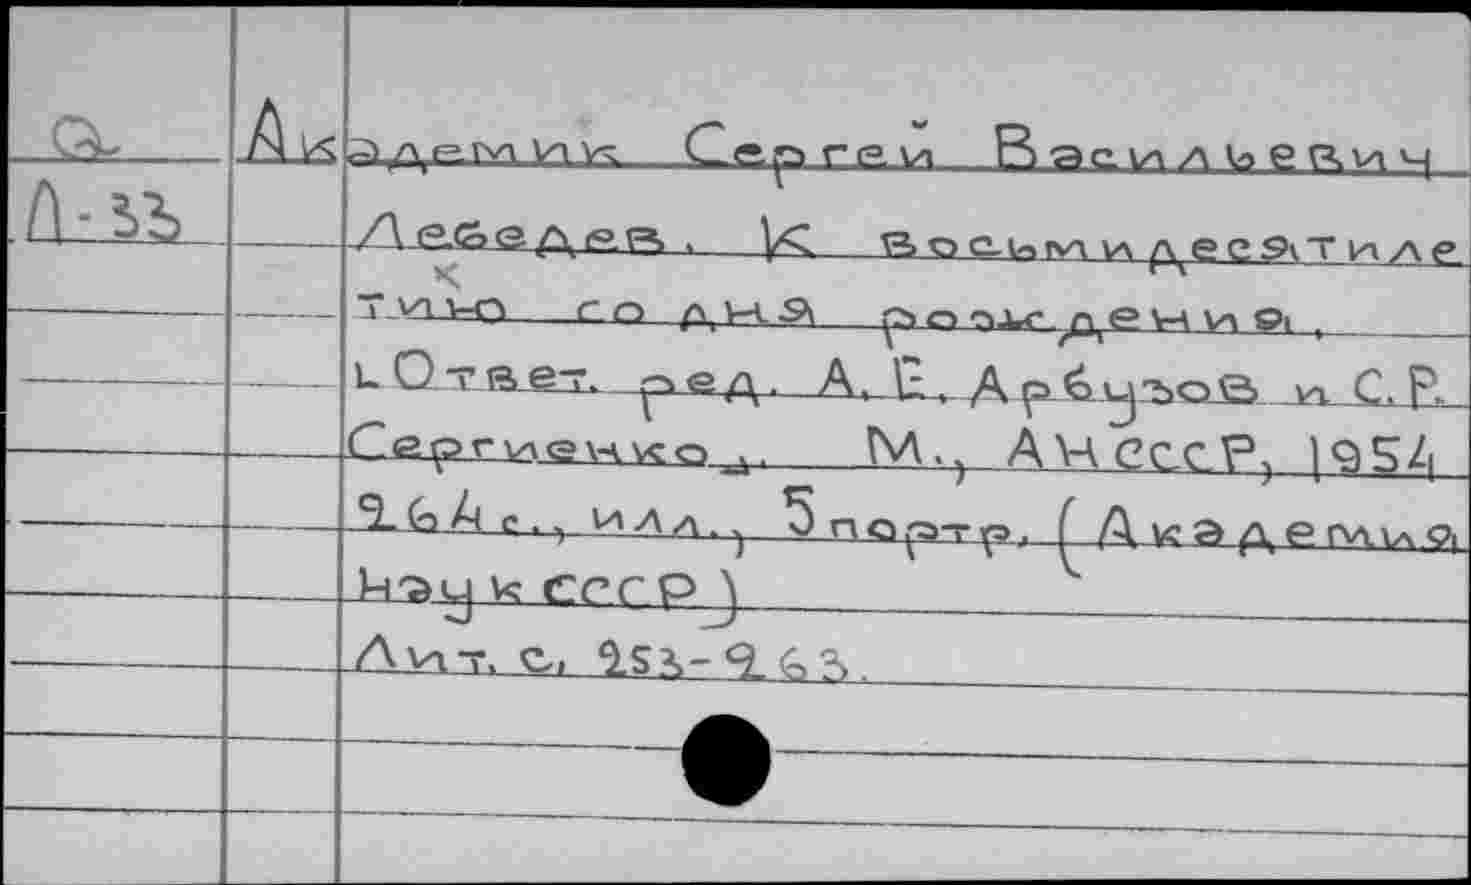 Q
Академик Сергей Васильевич
Л-33
Лебедев. К восьмидесятиле
тию со дня рождения.
Ответ. ред. А. Е. Арбузов и С. Р.
Сергиенко. М., АН СССР, 1954
264 с., илл., 5 портр. (Академия
наук СССР)
Лит. с. 253-263.